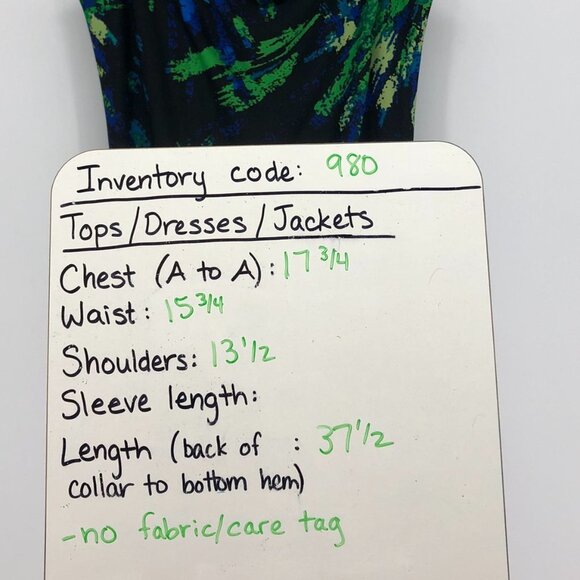 Inventory code: 980
Tops/Dresses/Jackets
Chest (A to A): 17 3/4
Waist: 15 3/4
Shoulders: 13 1/2
Sleeve length:
Length (back of : 37 1/2
collar to bottom hem)
-no fabric/care tag